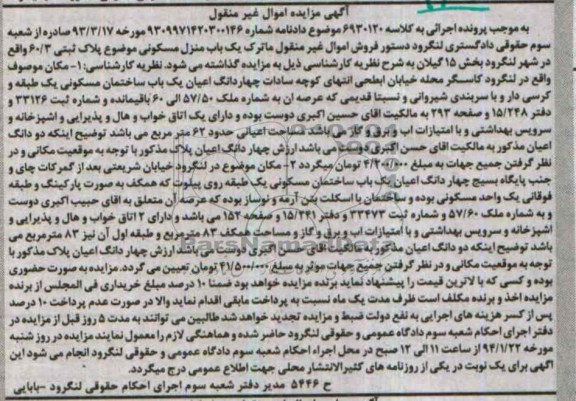 آگهی مزایده اموال غیر منقول
به موجب پرونده اجرائی به کلاسه ۶۹۳۰۱۲۰ موضوع دادنامه شماره ۹۳۰۹۹۷۱۴۲۰۳۰۰۱۴۶ مورخه ۹۳/۳/۱۷ صادره از شعبه
سوم حقوقی دادگستری لنگرود دستور فروش اموال غیر منقول ماترک یک باب منزل مسکونی موضوع پلاک ثبتی ۶۰/۳ واقع
در شهر لنگرود بخش ۱۵ گیلان به شرح نظریه کارشناسی ذیل به مزایده گذاشته می شود. نظریه کارشناسی: ۱- مکان موصوف
واقع در لنگرود کاسسگر محله خیابان ابطحی انتهای کوچه سادات چهاردانگ اعیان یک باب ساختمان مسکونی یک طبقه و
کرسی دار و با سربندی شیروانی و نسبتا قدیمی که عرصه ان به شماره ملک ۵۷/۵۰ الی ۶۰ باقیمانده و شماره ثبت ۳۳۱۲۶ و
دفتر ۱۵/۲۴۸ و صفحه ۲۹۳ به مالکیت اقای حسین اکبری دوست بوده و دارای یک اتاق خواب و هال و پذیرایی و اشپزخانه و
سرویس بهداشتی و با امتیازات اب و برق و گاز می باشد مساحت اعیانی حدود ۶۲ متر مربع می باشد توضیح اینکه دو دانگ
اعیان مذکور به مالکیت اقای حسن اکبری دوست می باشد ارزش چهار دانگ اعیان پلاک مذکور با توجه به موقعیت مکانی و در
نظر گرفتن جمیع جهات به مبلغ ۴/۲۰۰/۰۰۰ تومان میگردد ۲- مکان موضوع در لنگرود خیابان شریعتی بعد از گمرکات چای و
جنب پایگاه بسیج چهار دانگ اعیان یک باب ساختمان مسکونی یک طبقه روی پیلوت که همکف به صورت پارکینگ و طبقه
فوقانی یک واحد مسکونی بوده و ساختمان با اسکلت بتن آرمه و نوساز بوده که عرصه آن متعلق به اقای حبیب اکبری دوست
و به شماره ملک ۵۷/۶۰ و شماره ثبت ۳۳۴۷۳ و دفتر ۱۵/۲۴۱ و صفحه ۱۵۲ می باشد و دارای ۲ اتاق خواب و هال و پذیرایی و
اشپزخانه و سرویس بهداشتی و با امتیازات اب و برق و گاز و مساحت همکف ۸۳ مترمربع و طبقه اول آن نیز ۸۳ مترمربع می
باشد توضیح اینکه دو دانگ اعیان مذکور به مالکیت آقای حسن اکبری دوست می باشد ارزش چهار دانگ اعیان پلاک مذکور با
توجه به موقعیت مکانی و در نظر گرفتن جمیع جهات موثر به مبلغ ۴۱/۵۰۰/۰۰۰ تومان تعیین می گردد. مزایده به صورت حضوری
بوده و کسی که بالاترین قیمت را پیشنهاد نماید برنده مزایده خواهد بود ضمنا ۱۰ درصد مبلغ خریداری فی المجلس از برنده
مزایده اخذ و برنده مکلف است ظرف مدت یک ماه نسبت به پرداخت مابقی اقدام نماید والا در صورت عدم پرداخت ۱۰ درصد
پس از کسر هزینه های اجرایی به نفع دولت ضبط و مزایده تجدید خواهد شد طالبین می توانند به مدت ۵ روز قبل از مزایده در
دفتر اجرای احکام شعبه سوم دادگاه عمومی و حقوقی لنگرود حاضر شده و هماهنگی لازم را معمول نمایند مزایده در روز شنبه
مورخه ۹۴/۱/۲۲ از ساعت ۱۱ الی ۱۲ صبح در محل اجراء احکام شعبه سوم دادگاه عمومی و حقوقی لنگرود انجام می شود این
آگهی برای یک نوبت در یکی از روزنامه های کثیرالانتشار محلی جهت اطلاع عمومی درج میگردد.
ح ۵۴۴۶ مدیر دفتر شعبه سوم اجرای احکام حقوقی لنگرود -بابایی